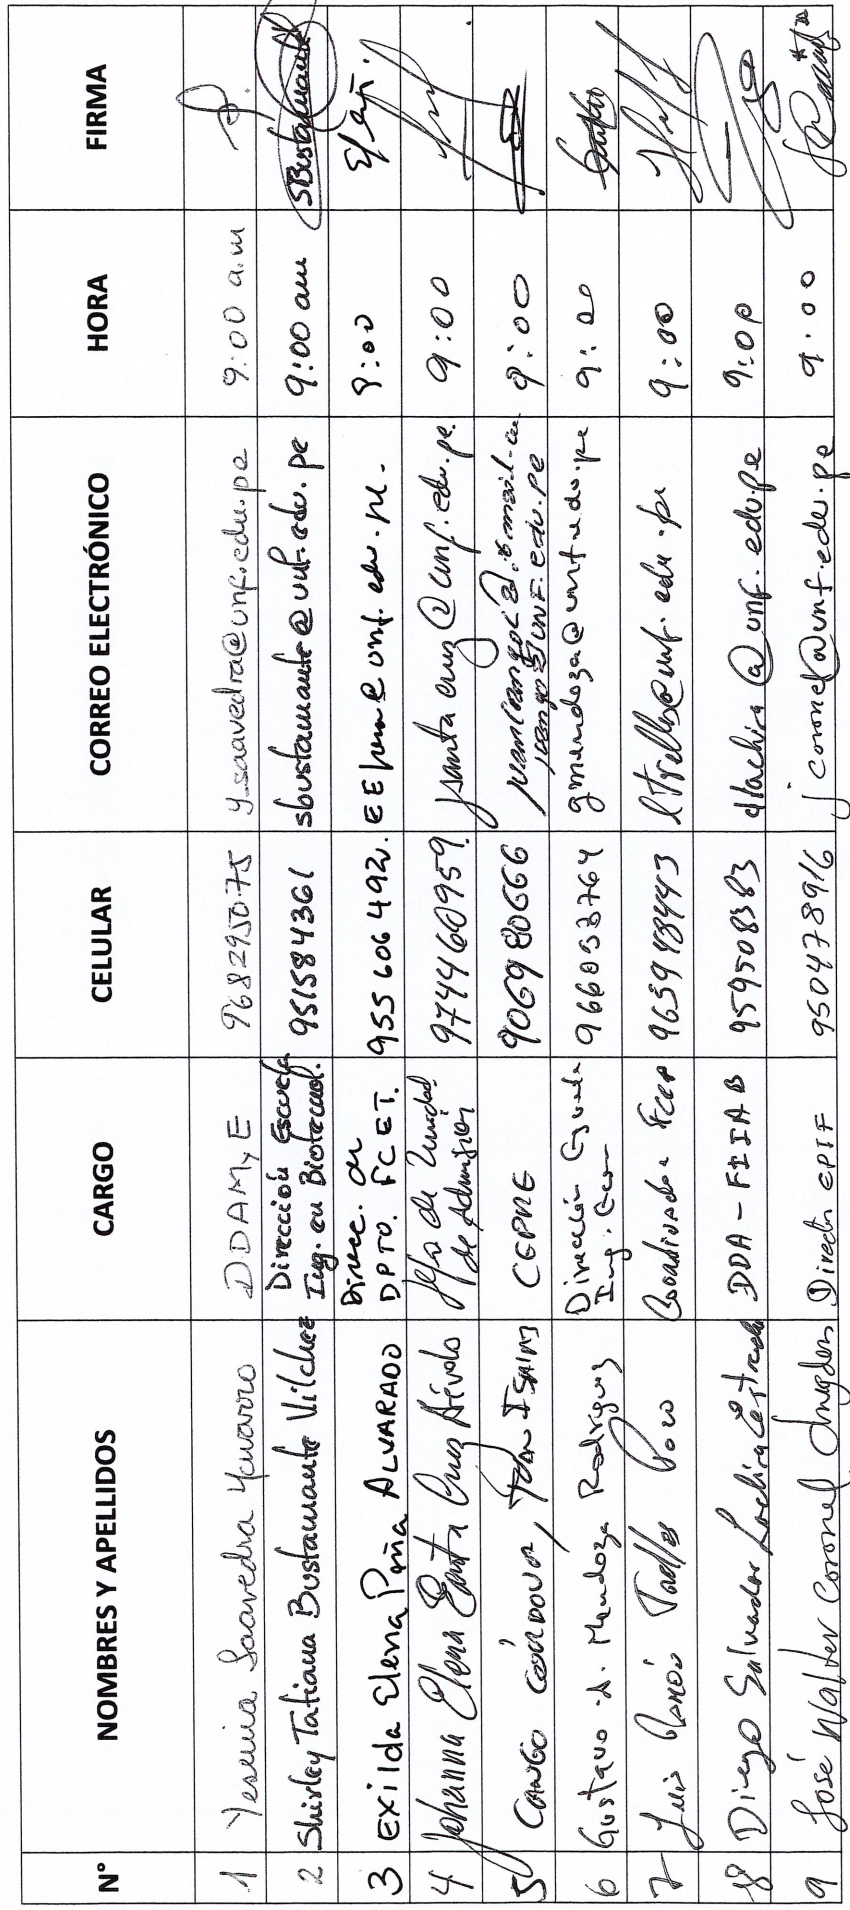 N° NOMBRES Y APELLIDOS CARGO CELULAR CORREO ELECTRÓNICO HORA FIRMA
1 Yesenia Saavedra Navarro DDAMyE 968295075 y_saavedra@unf.edu.pe 9:00 a.m
2 Shirley Tatiana Bustamante Vilchez Dirección Escuela 951584361 sbustamante@unf.edu.pe 9:00 am SBustamante
Ing. en Biotecnol.
3 Exilda Elena Peña ALVARADO Direcc. de 955606492. 9:00
DPTO. FCET.
4 Johanna Elena Santa Cruz Arévalo Jefa de Unidad 974460959. jsanta cruz@unf.edu.pe. 9:00
de Admisión
5 CANGO CÓRDOVA, 906980666 9:00
6 Gustavo A. Mendoza Rodriguez Dirección Escuela 966053764 gmendoza@unf.edu.pe 9:00
7 Luis Ramón Trelles Pozo Coordinador 965948443 ltrelles@unf.edu.pe 9:00
8 Diego Salvador Lachira Estrada DDA-FIIAB 959508383 dlachira@unf.edu.pe 9:00
9 José Walter Coronel Director EPIF 950478916 jcoronel@unf.edu.pe 9:00